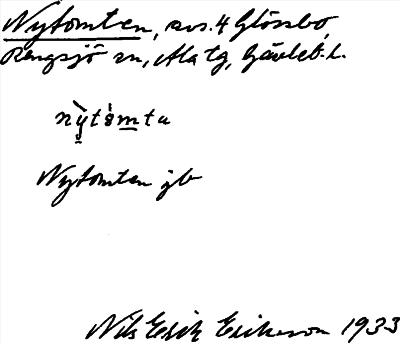 Nytomten, avs. 4 Glössbo,
Rengsjö sn, Ala tg, Gävleb. l.
nỳtòmta
Nytomten jb
Nils Erik Eriksson 1933